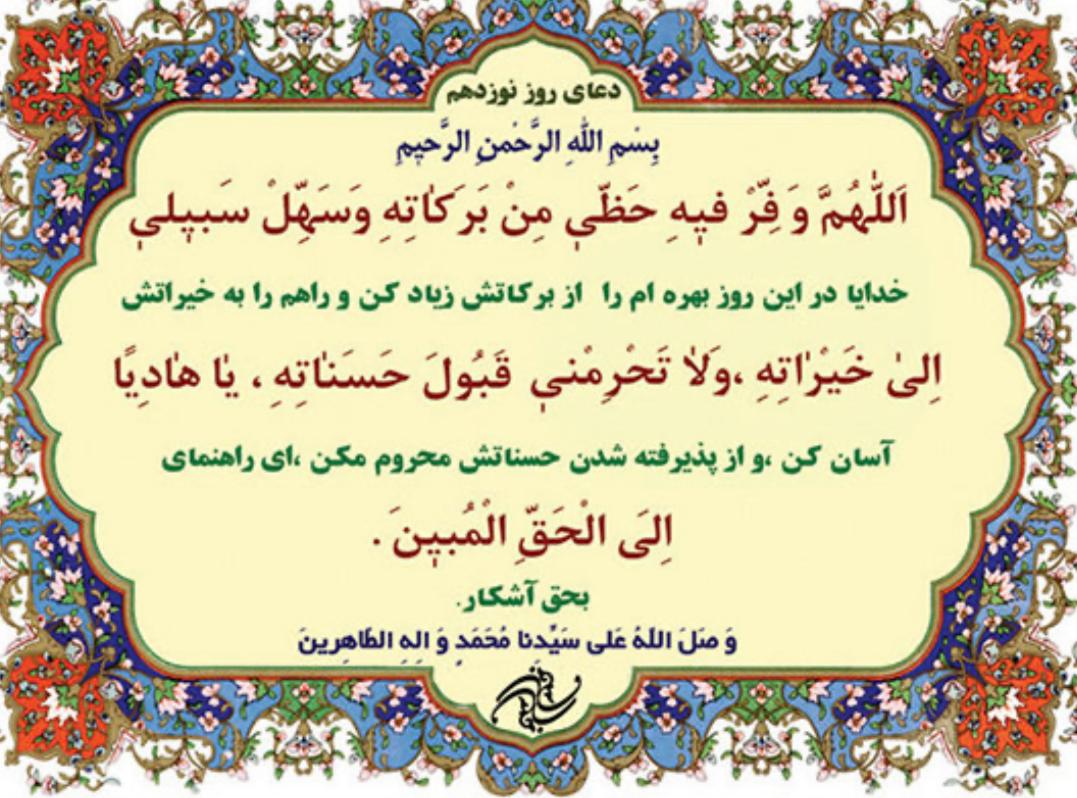 دعای روز نوزدهم
بِسْمِ اللهِ الرَّحْمنِ الرَّحیمِ
اَللّٰهُمَّ وَفِّرْ فیهِ حَظّی مِنْ بَرَکٰاتِهِ وَسَهِّلْ سَبیلی
خدایا در این روز بهره ام را از برکاتش زیاد کن و راهم را به خیراتش
اِلیٰ خَیْرٰاتِهِ ،وَلاٰ تَحْرِمْنی قَبُولَ حَسَنٰاتِهِ ، یٰا هٰادِیًا
آسان کن ،و از پذیرفته شدن حسناتش محروم مکن ،ای راهنمای
اِلَی الْحَقِّ الْمُبینَ .
بحق آشکار.
وَ صَلَ اللهُ عَلی سَیِّدِنا مُحَمَدٍ وَ الِهِ الطّاهِرینَ